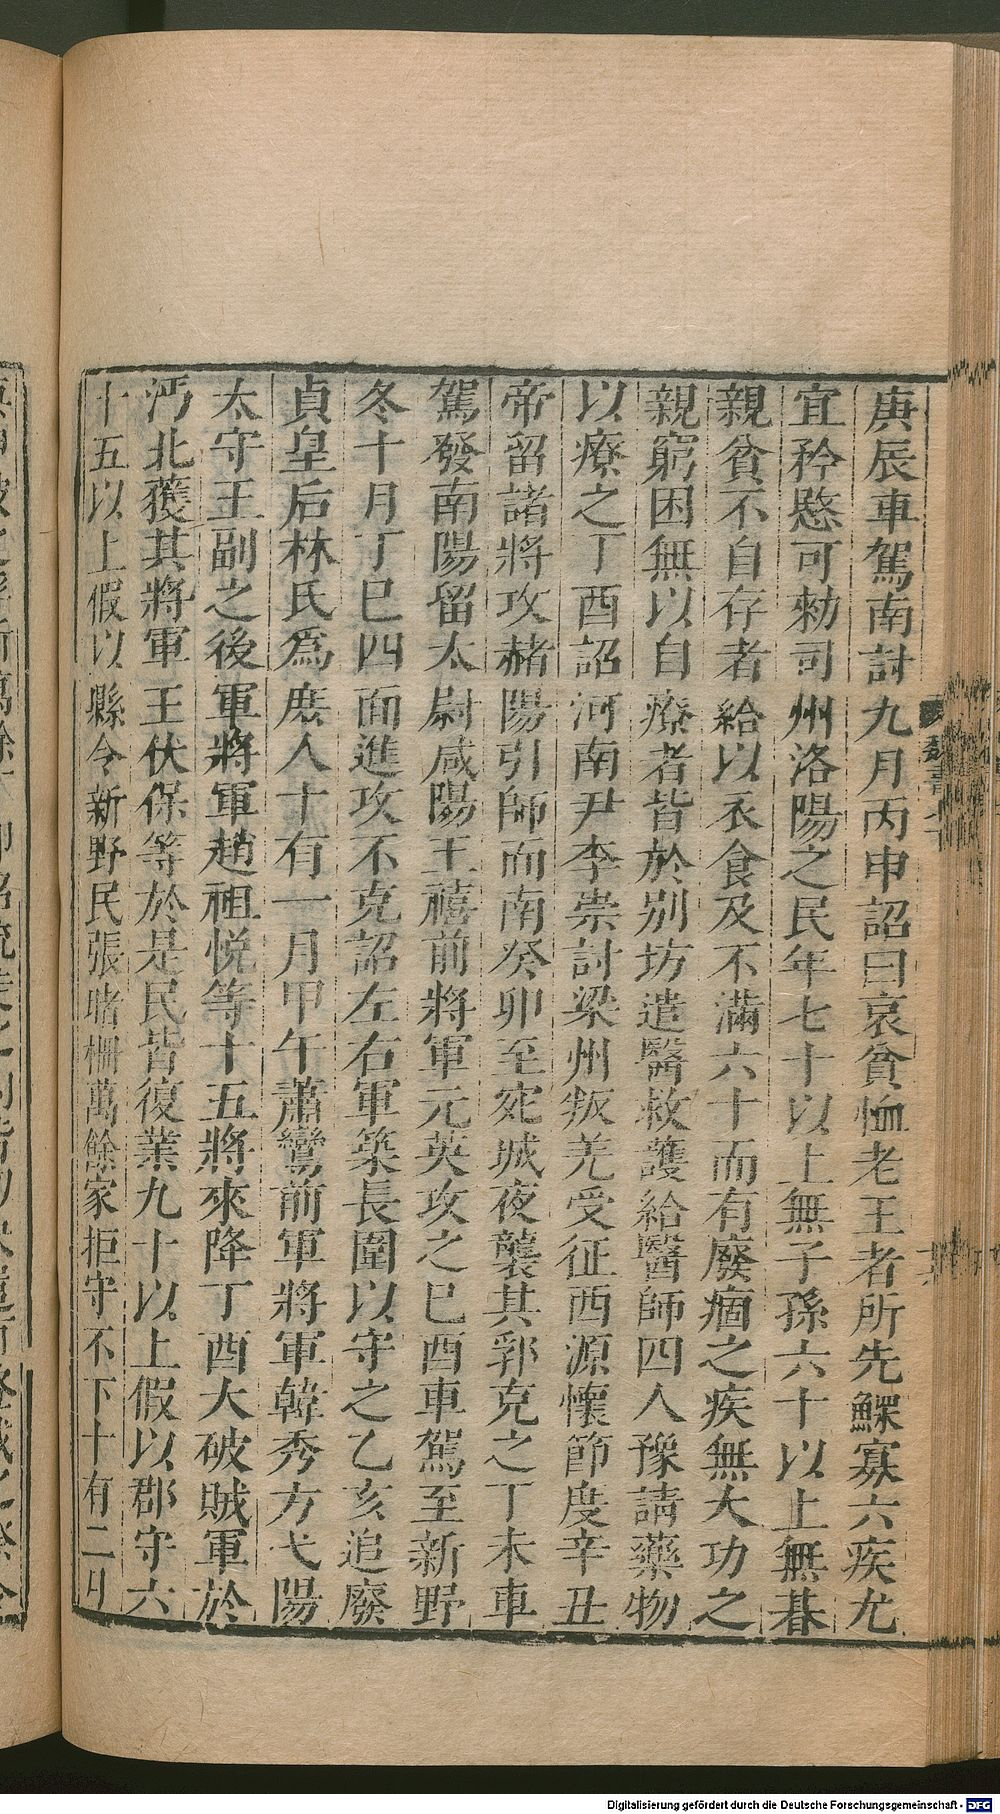 庚辰車駕南討九月丙申詔曰哀貧恤老王者所先鰥寡六疾尤
宜矜愍可勑司州洛陽之民年七十以上無子孫六十以上無朞
親貧不自存者給以衣食及不滿六十而有廢痼之疾無大功之
親窮困無以自療者皆於别坊遣醫救護給醫師四人豫請藥物
以療之丁酉詔河南尹李崇討梁州叛羌受征西源懷節度辛丑
帝留諸將攻赭陽引師而南癸卯至宛城夜襲其郛克之丁未車
駕發南陽留太尉咸陽王禧前將軍元英攻之已酉車駕至新野
冬十月丁巳四面進攻不克詔左右軍築長圍以守之乙亥追廢
貞皇后林氏爲庶人十有一月甲午蕭鸞前軍將軍韓秀方弋陽
太守王副之後軍將軍趙祖悦等十五將來降丁酉大破賊軍於
沔北獲其將軍王伏保等於是民皆復業九十以上假以郡守六
十五以上假以縣令新野民張睹柵萬餘家拒守不下十有二月
魏書
Digitalisierung gefördert durch die Deutsche Forschungsgemeinschaft - DFG